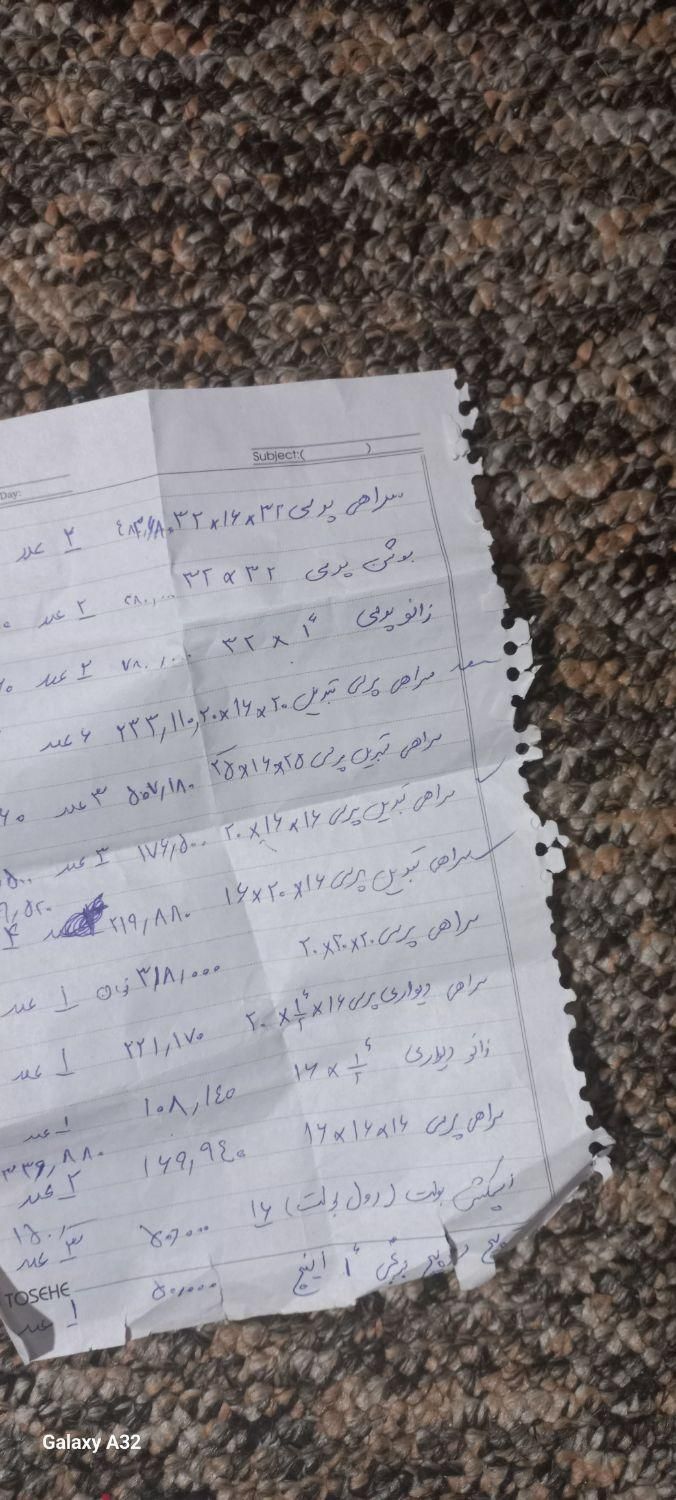 Subject:( )
Day:
سراهی پرسی ۳۲×۱۶×۳۲ ۲ عدد
بوشن پرسی ۳۲×۳۲ ۲ عدد
زانو پرسی ۱"×۳۲ ۷۸۰,۰۰۰ ۲ عدد
سراهی پرسی تبدیل ۲۰×۱۶×۲۰ ۲۳۳,۱۱۰ ۶ عدد
سراهی تبدیل پرسی ۲۵×۱۶×۲۵ ۵۰۷,۱۸۰ ۳ عدد
سراهی تبدیل پرسی ۱۶×۱۶×۲۰ ۱۷۶,۵۰۰ ۳ عدد
سراهی تبدیل پرسی ۱۶×۲۰×۱۶ ۲۱۹,۸۸۰ ۴
سراهی پرسی ۲۰×۲۰×۲۰ ۳۱۸,۰۰۰ تومان ۱ عدد
سراهی دیواری پرسی ۱۶×۱/۲"×۲۰ ۲۲۱,۱۷۰ ۱ عدد
زانو دیواری ۱/۲"×۱۶ ۱۰۸,۱۴۰ ۱ عدد
سراهی پرسی ۱۶×۱۶×۱۶ ۱۶۹,۹۴۰ ۲ عدد
۳۳۹,۸۸۰
بولت (رول بولت) ۱۶ ۳ عدد
برنجی ۱" اینچ ۵۰,۰۰۰ ۱ عدد
TOSEHE
Galaxy A32